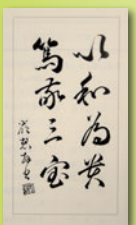 以和為貴
篤敬三宝